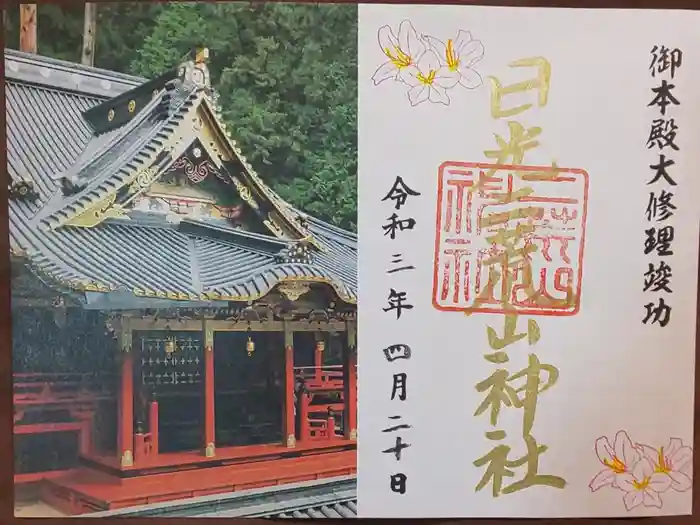 御本殿大修理竣功
日光二荒山神社
令和三年 四月二十日